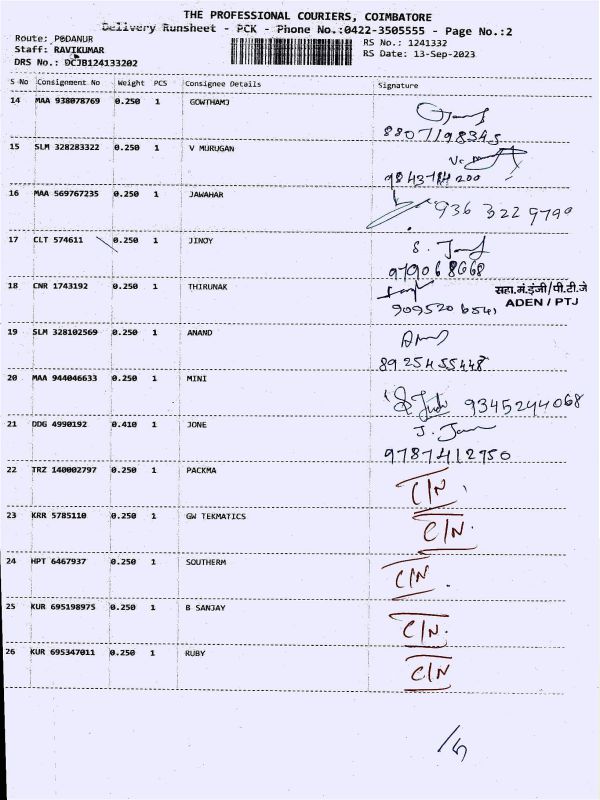 THE PROFESSIONAL COURIERS, COIMBATORE
Delivery Runsheet - PCK - Phone No.:0422-3505555 - Page No.:2
Route: PODANUR
RS No.: 1241332
Staff: RAVIKUMAR
RS Date: 13-Sep-2023
DRS No.: DCJB124133202
S No Consignment No Weight PCS Consignee Details Signature
14 MAA 938078769 0.250 1 GOWTHAMJ
8807198345
15 SLM 328283322 0.250 1 V MURUGAN
9843784200
16 MAA 569767235 0.250 1 JAWAHAR
936 322 9790
17 CLT 574611 0.250 1 JINOY
9790686668
18 CNR 1743192 0.250 1 THIRUNAK
सहा.मं.इंजी/पी.टी.जे
ADEN / PTJ
9095206541
19 SLM 328102569 0.250 1 ANAND
8925455448
20 MAA 944046633 0.250 1 MINI
9345244068
21 DDG 4990192 0.410 1 JONE
9787412750
22 TRZ 140002797 0.250 1 PACKMA C/N
23 KRR 5785110 0.250 1 GW TEKMATICS C/N.
24 HPT 6467937 0.250 1 SOUTHERM C/N.
25 KUR 695198975 0.250 1 B SANJAY C/N.
26 KUR 695347011 0.250 1 RUBY C/N